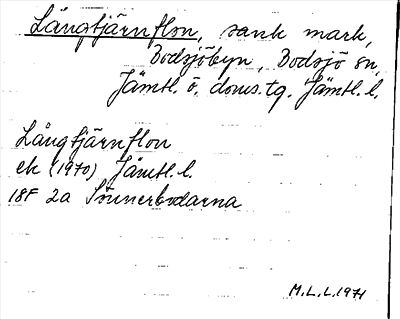 Långtjärnflon, sank mark,
Bodsjöbyn, Bodsjö sn,
Jämtl. ö. doms.tg. Jämtl. l.
Långtjärnflon
ek (1970) Jämtl. l.
18F 2a Sönnerbodarna
M.L.L. 1971